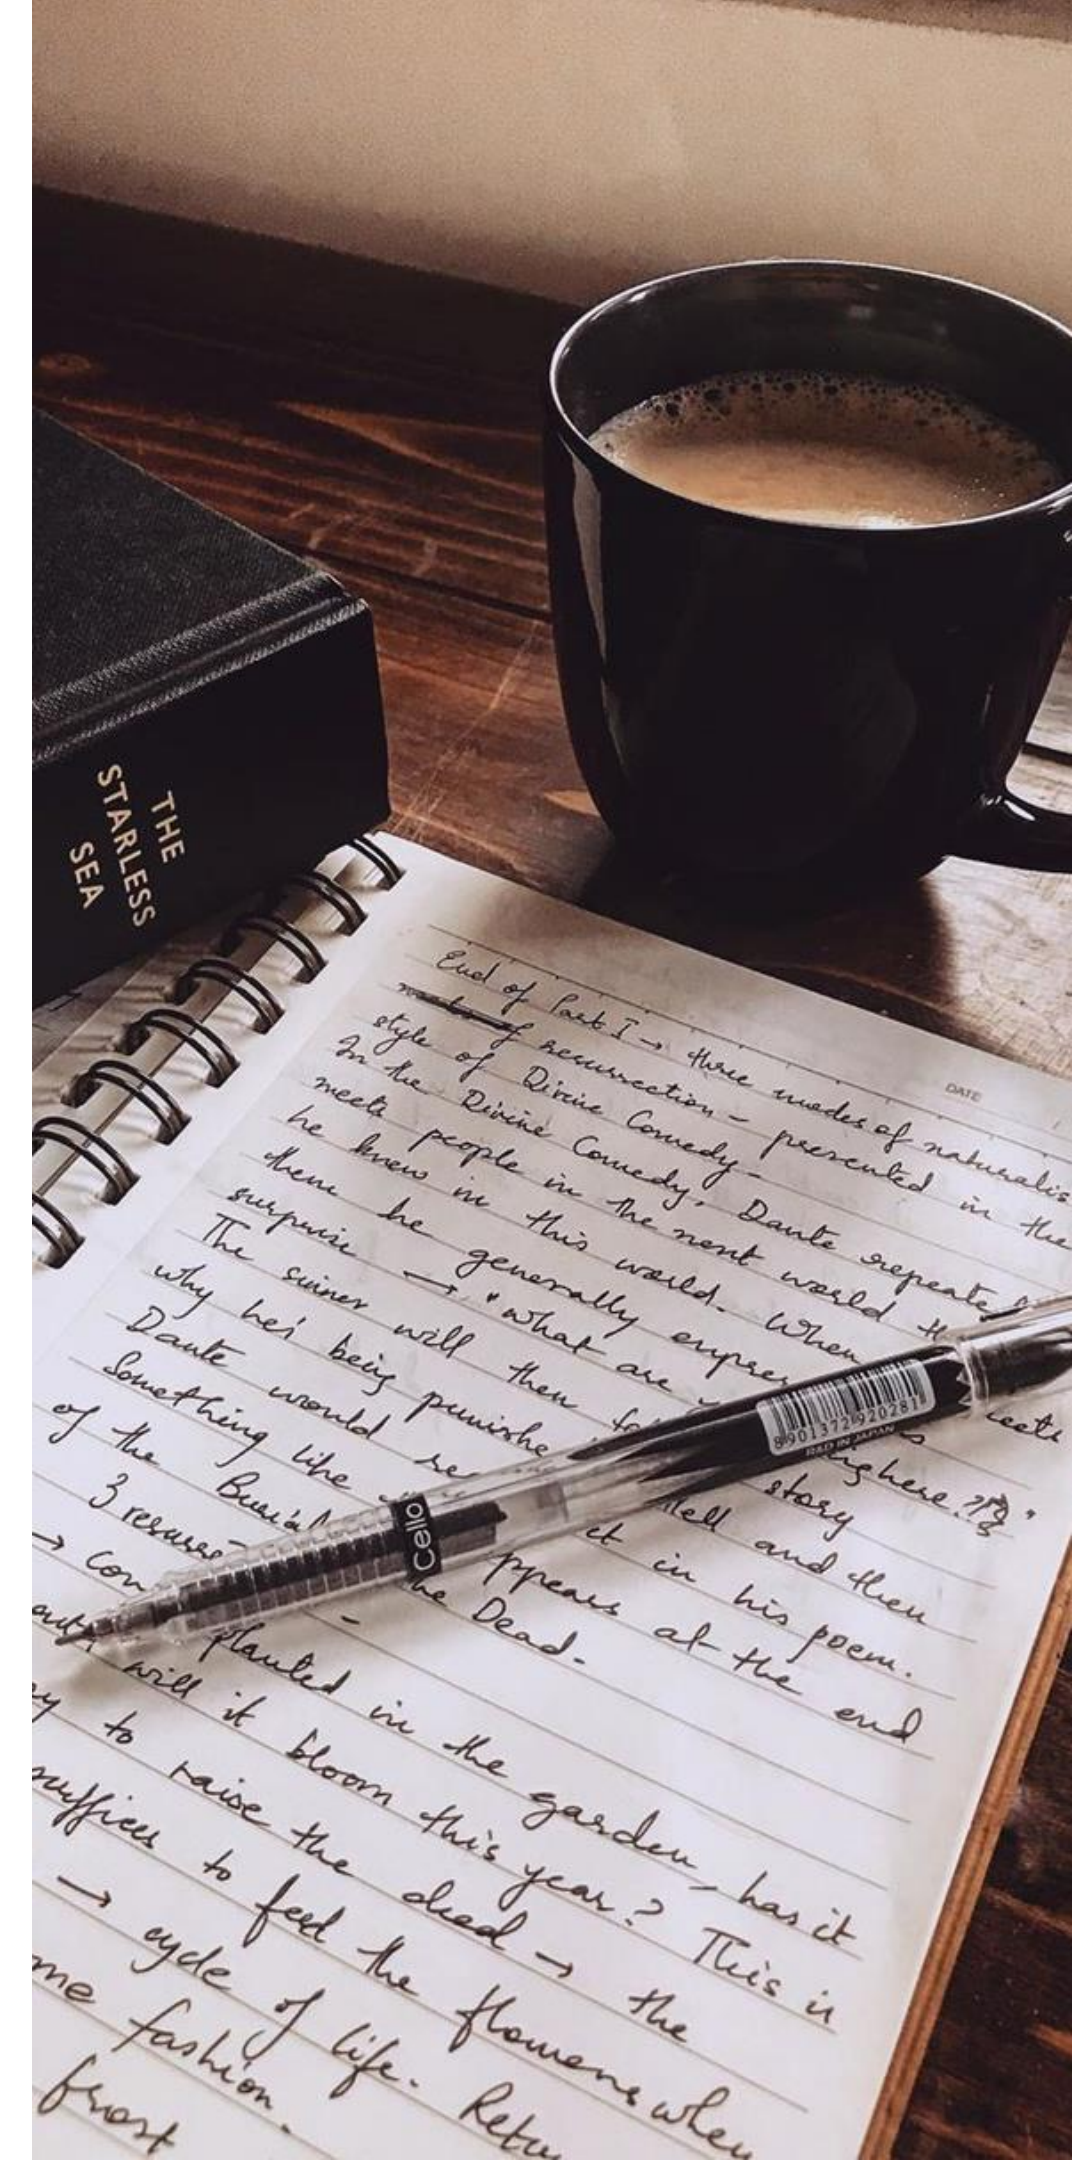 THE
STARLESS
SEA
DATE
End of Part I → three modes of naturalis
of resurrection - presented in the
style of Divine Comedy -
In the Divine Comedy, Dante repeate
meets people in the next world
he knew in this world. When
them he generally expres
surprise → "what are
The sinner will then story
why he's being punishe Hell and then
Dante would it in his poem.
Something like appears at the end
of the Burial the Dead.
3 resurre
→ planted in the garden, has it
will it bloom this year? This is
to raise the dead → the
suffices to feed the flowers when
→ cycle of life. Retu
me fashion.
frost
Cello
8901372920281
R&D IN JAPAN